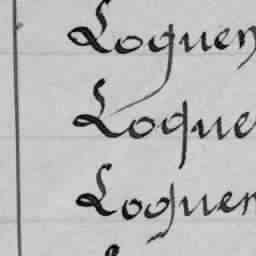 Loguen
Loque
Loguen